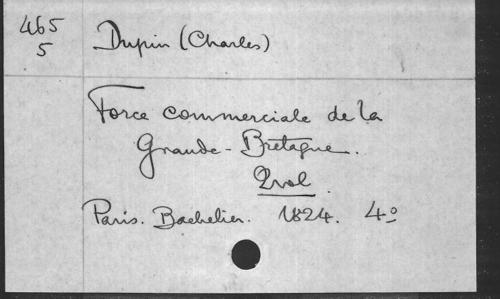 465
5
Dupin (Charles)
Force commerciale de la
Grande-Bretagne.
2 vol.
Paris. Bachelier. 1824. 4º